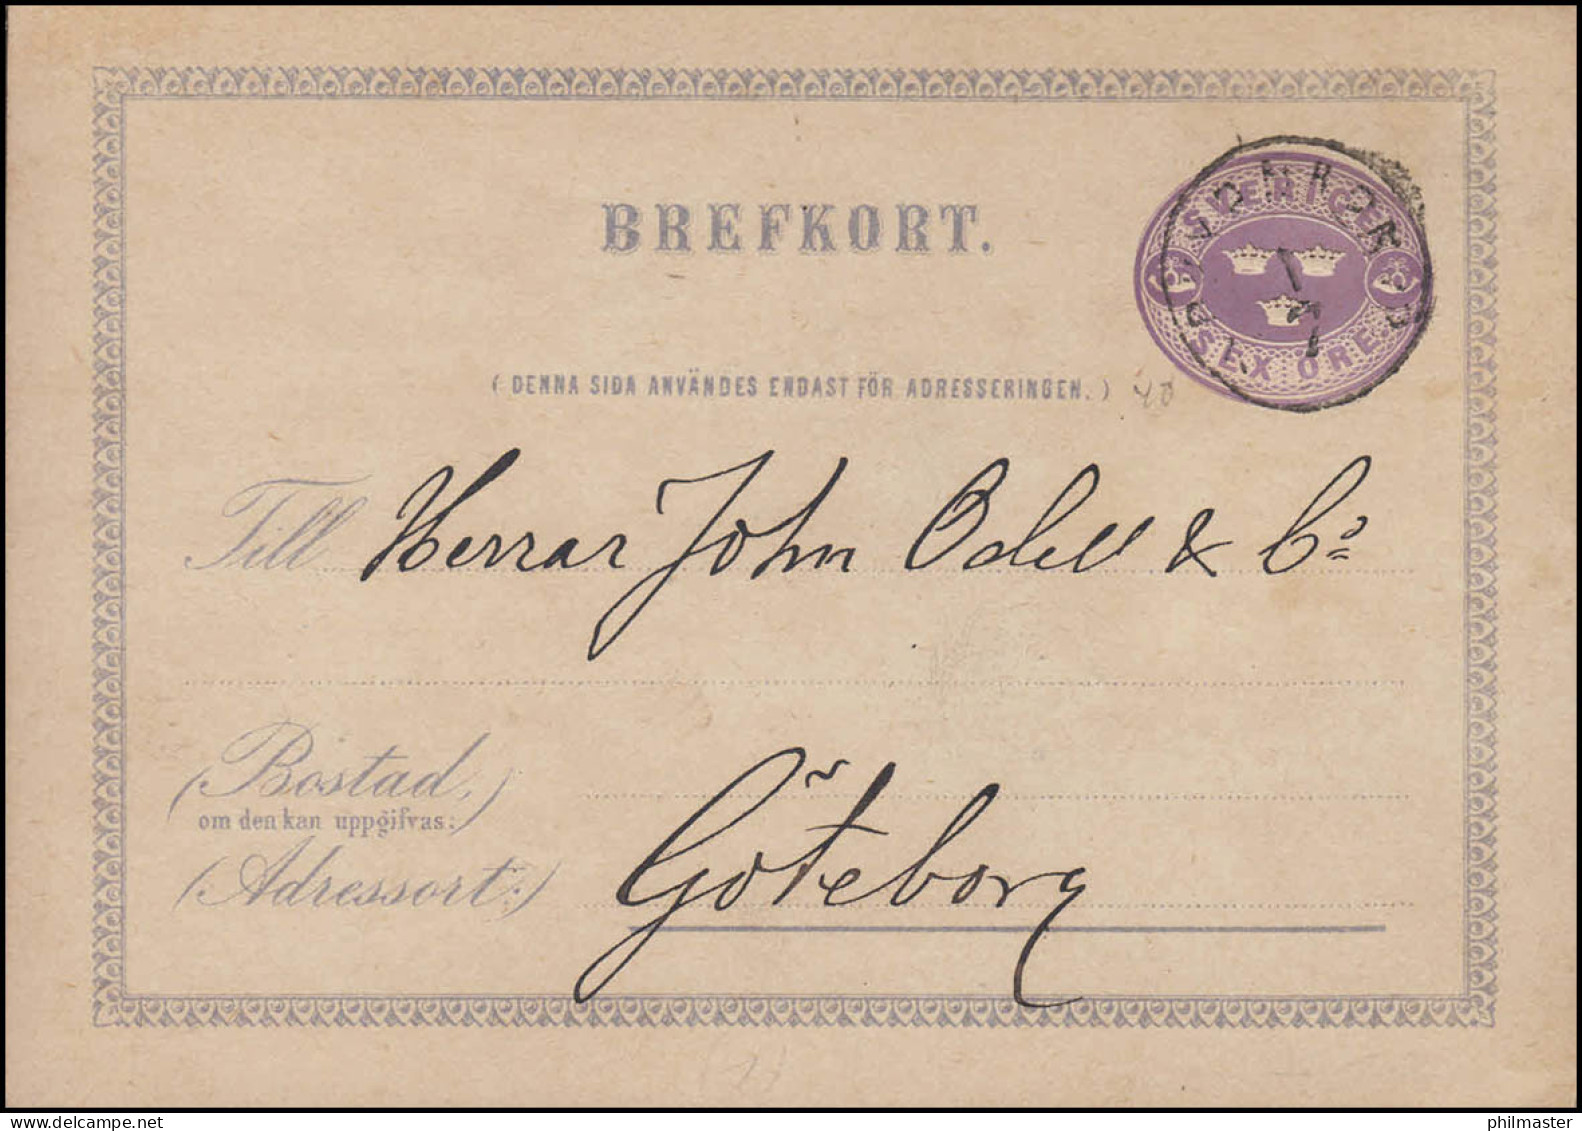 BREFKORT.
SVERIGE
6 6
SEX ÖRE
(DENNA SIDA ANVÄNDES ENDAST FÖR ADRESSERINGEN.)
Till Herrar John Odell & Co
(Bostad,)
om den kan uppgifvas:
(Adressort:) Göteborg
philmaster